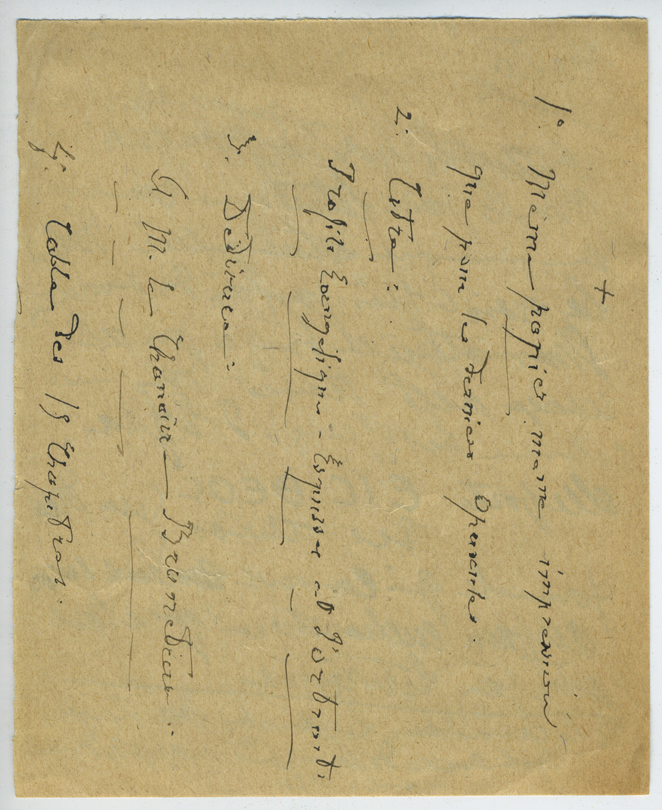 +
1° Même papier même impression
que pour les derniers opuscules.
2. Titre:
Profils Evangéliques - Esquisses et Portraits.
3. Dédicace:
A M. le Chanoine Brunetière:
4. Table des 18 Chapitres.